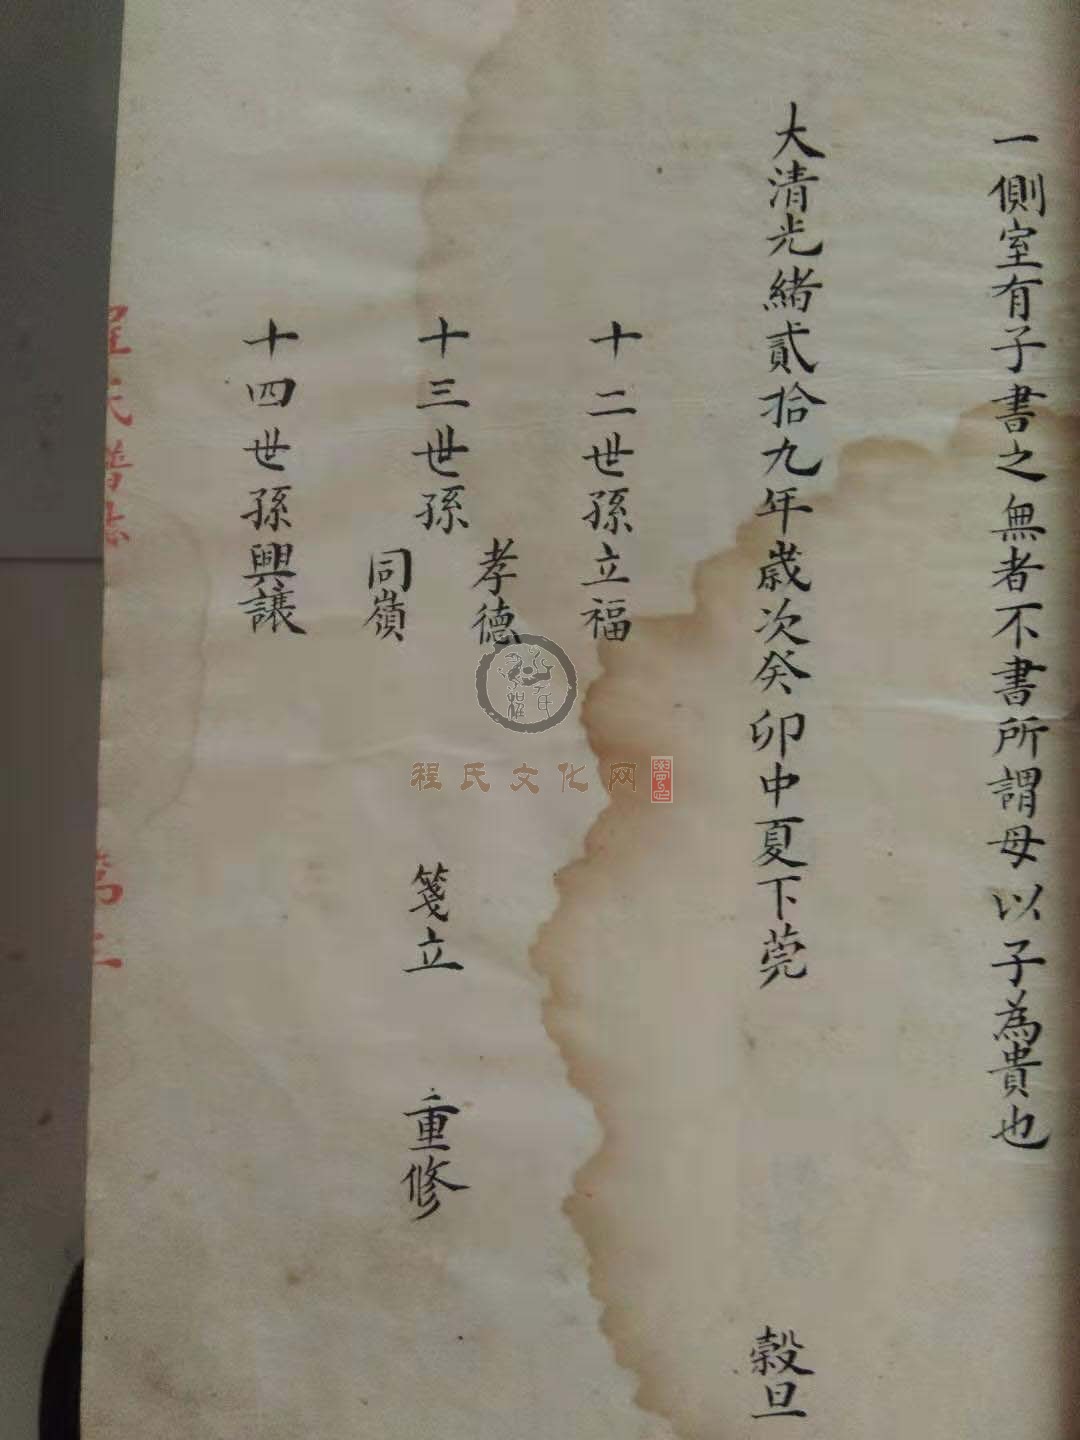 一側室有子書之無者不書所謂母以子為貴也
大清光緒貳拾九年歲次癸卯中夏下莞 穀旦
十二世孫立福
十三世孫
孝德
同嶺
箋立 重修
十四世孫興讓
程氏譜誌
程氏文化网